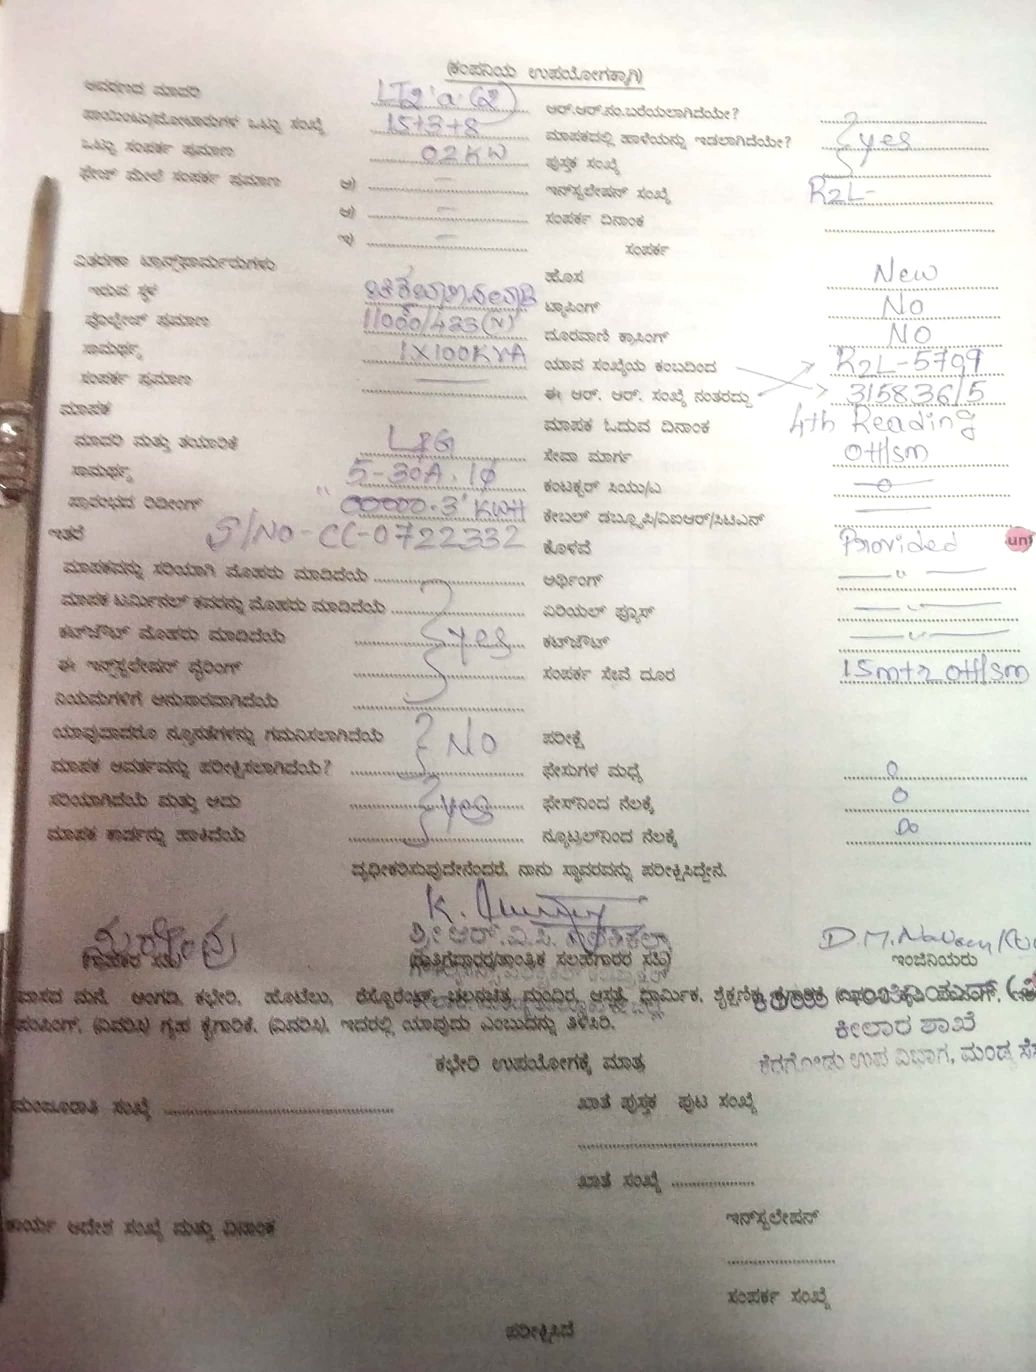 (ಕಂಪನಿಯ ಉಪಯೋಗಕ್ಕಾಗಿ)
ಆವರಣದ ಮಾದರಿ LT2·a·(2) ಆರ್.ಆರ್.ನಂ.ಬರೆಯಲಾಗಿದೆಯೇ?
ಪಾಯಿಂಟು/ಮೋಟಾರುಗಳ ಒಟ್ಟು ಸಂಖ್ಯೆ 15+3+8 ಮಾಪಕದಲ್ಲಿ ಹಾಳೆಯನ್ನು ಇಡಲಾಗಿದೆಯೇ? yes
ಒಟ್ಟು ಸಂಪರ್ಕ ಪ್ರಮಾಣ 02KW ಪುಸ್ತಕ ಸಂಖ್ಯೆ
ಫೇಸ್ ಮೇಲೆ ಸಂಪರ್ಕ ಪ್ರಮಾಣ ಅ) — ಇನ್‌ಸ್ಟಲೇಷನ್ ಸಂಖ್ಯೆ R2L-
ಆ) — ಸಂಪರ್ಕ ದಿನಾಂಕ
ಇ) — ಸಂಪರ್ಕ
ವಿತರಣಾ ಟ್ರಾನ್ಸ್‌ಫಾರ್ಮರುಗಳು
ಇರುವ ಸ್ಥಳ ಹೊಸ New
ವೋಲ್ಟೇಜ್ ಪ್ರಮಾಣ 11000/433(V) ಟ್ಯಾಪಿಂಗ್ NO
ಸಾಮರ್ಥ್ಯ 1X100KVA ದೂರವಾಣಿ ಕ್ರಾಸಿಂಗ್ NO
ಸಂಪರ್ಕ ಪ್ರಮಾಣ — ಯಾವ ಸಂಖ್ಯೆಯ ಕಂಬದಿಂದ R2L-5799
ಮಾಪಕ ಈ ಆರ್. ಆರ್. ಸಂಖ್ಯೆ ನಂತರದ್ದು 315836/5
ಮಾಪಕ ಓದುವ ದಿನಾಂಕ 4th Reading
ಮಾದರಿ ಮತ್ತು ತಯಾರಿಕೆ L&G ಸೇವಾ ಮಾರ್ಗ OH/sm
ಸಾಮರ್ಥ್ಯ 5-30A·1φ ಕಂಡಕ್ಟರ್ ಸಿಯು/ಎ —0—
ಪ್ರಾರಂಭದ ರೀಡಿಂಗ್ "00000·3" KWH ಕೇಬಲ್ ಡಬ್ಲ್ಯೂಪಿ/ವಿಐಆರ್/ಸಿಟಿಎನ್ —
ಇತರೆ S/NO-CC-0722332 ಕೊಳವೆ Provided
ಮಾಪಕವನ್ನು ಸರಿಯಾಗಿ ಮೊಹರು ಮಾಡಿದೆಯೆ ಅರ್ಥಿಂಗ್ —"—
ಮಾಪಕ ಟರ್ಮಿನಲ್ ಕವರನ್ನು ಮೊಹರು ಮಾಡಿದೆಯೆ ಏರಿಯಲ್ ಫ್ಯೂಸ್ —"—
ಕಟ್‌ಔಟ್ ಮೊಹರು ಮಾಡಿದೆಯೆ yes ಕಟ್‌ಔಟ್ —"—
ಈ ಇನ್‌ಸ್ಟಲೇಷನ್ ವೈರಿಂಗ್ ಸಂಪರ್ಕ ಸೇವೆ ದೂರ 15m+2 OH/sm
ನಿಯಮಗಳಿಗೆ ಅನುಸಾರವಾಗಿದೆಯೆ
ಯಾವುದಾದರೂ ನ್ಯೂನತೆಗಳನ್ನು ಗಮನಿಸಲಾಗಿದೆಯೆ NO ಪರೀಕ್ಷೆ
ಮಾಪಕ ಆವರ್ತವನ್ನು ಪರೀಕ್ಷಿಸಲಾಗಿದೆಯೆ? ಫೇಸುಗಳ ಮಧ್ಯೆ 0
ಸರಿಯಾಗಿದೆಯೆ ಮತ್ತು ಅದು yes ಫೇಸ್‌ನಿಂದ ನೆಲಕ್ಕೆ 0
ಮಾಪಕ ಕಾರ್ಡನ್ನು ಹಾಕಿದೆಯೆ ನ್ಯೂಟ್ರಲ್‌ನಿಂದ ನೆಲಕ್ಕೆ
ದೃಢೀಕರಿಸುವುದೇನೆಂದರೆ, ನಾನು ಸ್ಥಾವರವನ್ನು ಪರೀಕ್ಷಿಸಿದ್ದೇನೆ.
(ಗುತ್ತಿಗೆದಾರರ/ತಾಂತ್ರಿಕ ಸಲಹೆಗಾರರ ಸಹಿ) ಇಂಜಿನಿಯರು
ವಾಸದ ಮನೆ, ಅಂಗಡಿ, ಕಛೇರಿ, ಹೊಟೆಲು, ರೆಸ್ಟೊರೆಂಟ್, ಚಲನಚಿತ್ರ ಮಂದಿರ, ಆಸ್ಪತ್ರೆ, ಧಾರ್ಮಿಕ, ಶೈಕ್ಷಣಿಕ,
ಪಂಪಿಂಗ್, (ವಿವರಿಸಿ) ಗೃಹ ಕೈಗಾರಿಕೆ, (ವಿವರಿಸಿ), ಇದರಲ್ಲಿ ಯಾವುದು ಎಂಬುದನ್ನು ತಿಳಿಸಿರಿ.
ಕೀಲಾರ ಶಾಖೆ
ಕೆರಗೋಡು ಉಪ ವಿಭಾಗ, ಮಂಡ್ಯ
ಕಛೇರಿ ಉಪಯೋಗಕ್ಕೆ ಮಾತ್ರ
ಮಂಜೂರಾತಿ ಸಂಖ್ಯೆ ಖಾತೆ ಪುಸ್ತಕ ಪುಟ ಸಂಖ್ಯೆ
ಖಾತೆ ಸಂಖ್ಯೆ
ಕಾರ್ಯ ಆದೇಶ ಸಂಖ್ಯೆ ಮತ್ತು ದಿನಾಂಕ ಇನ್‌ಸ್ಟಲೇಷನ್
ಸಂಪರ್ಕ ಸಂಖ್ಯೆ
ಪರೀಕ್ಷಿಸಿದೆ